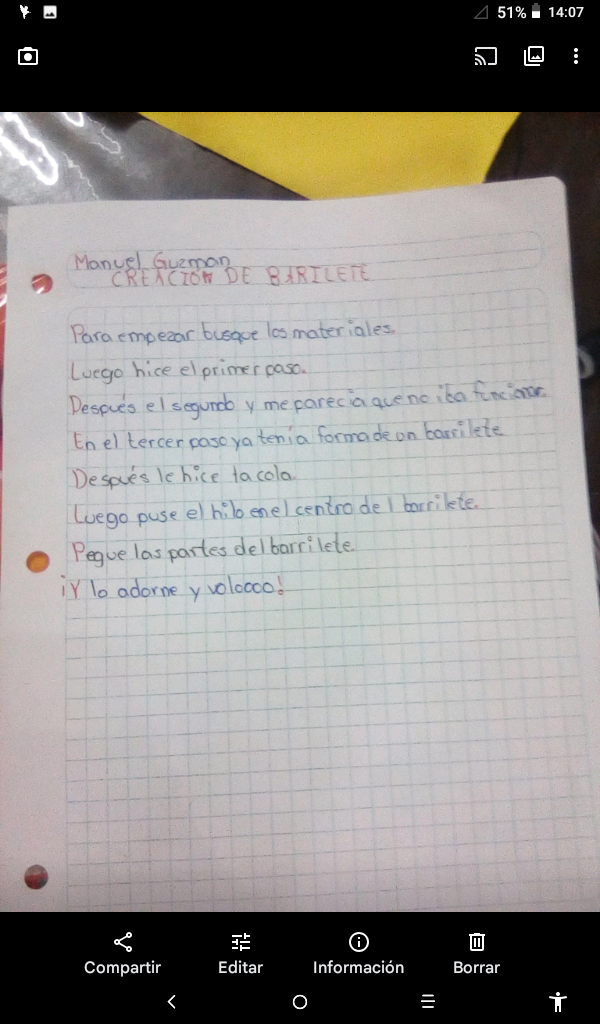 51% 14:07
Manuel Guzman
CREACIÓN DE BARILETE
Para empezar busque los materiales.
Luego hice el primer paso.
Después el segundo y me parecia que no iba funcionar.
En el tercer paso ya tenia forma de un barrilete
Después le hice la cola.
Luego puse el hilo en el centro del barrilete.
Pegue las partes del barrilete.
¡Y lo adorne y volooco!
Compartir Editar Información Borrar